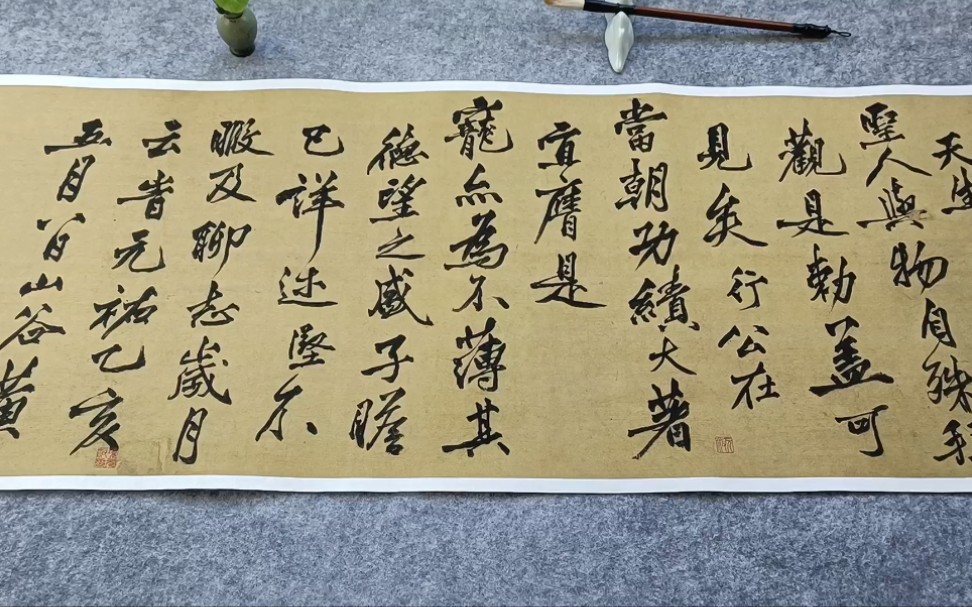 天生
聖人與物自殊
觀是勅蓋可
見矣行公在
當朝功績大著
宜膺是
寵亦為不薄其
德望之盛子瞻
已詳述堅不
暇及聊志歲月
云旹元祐乙亥
五月八日山谷黃